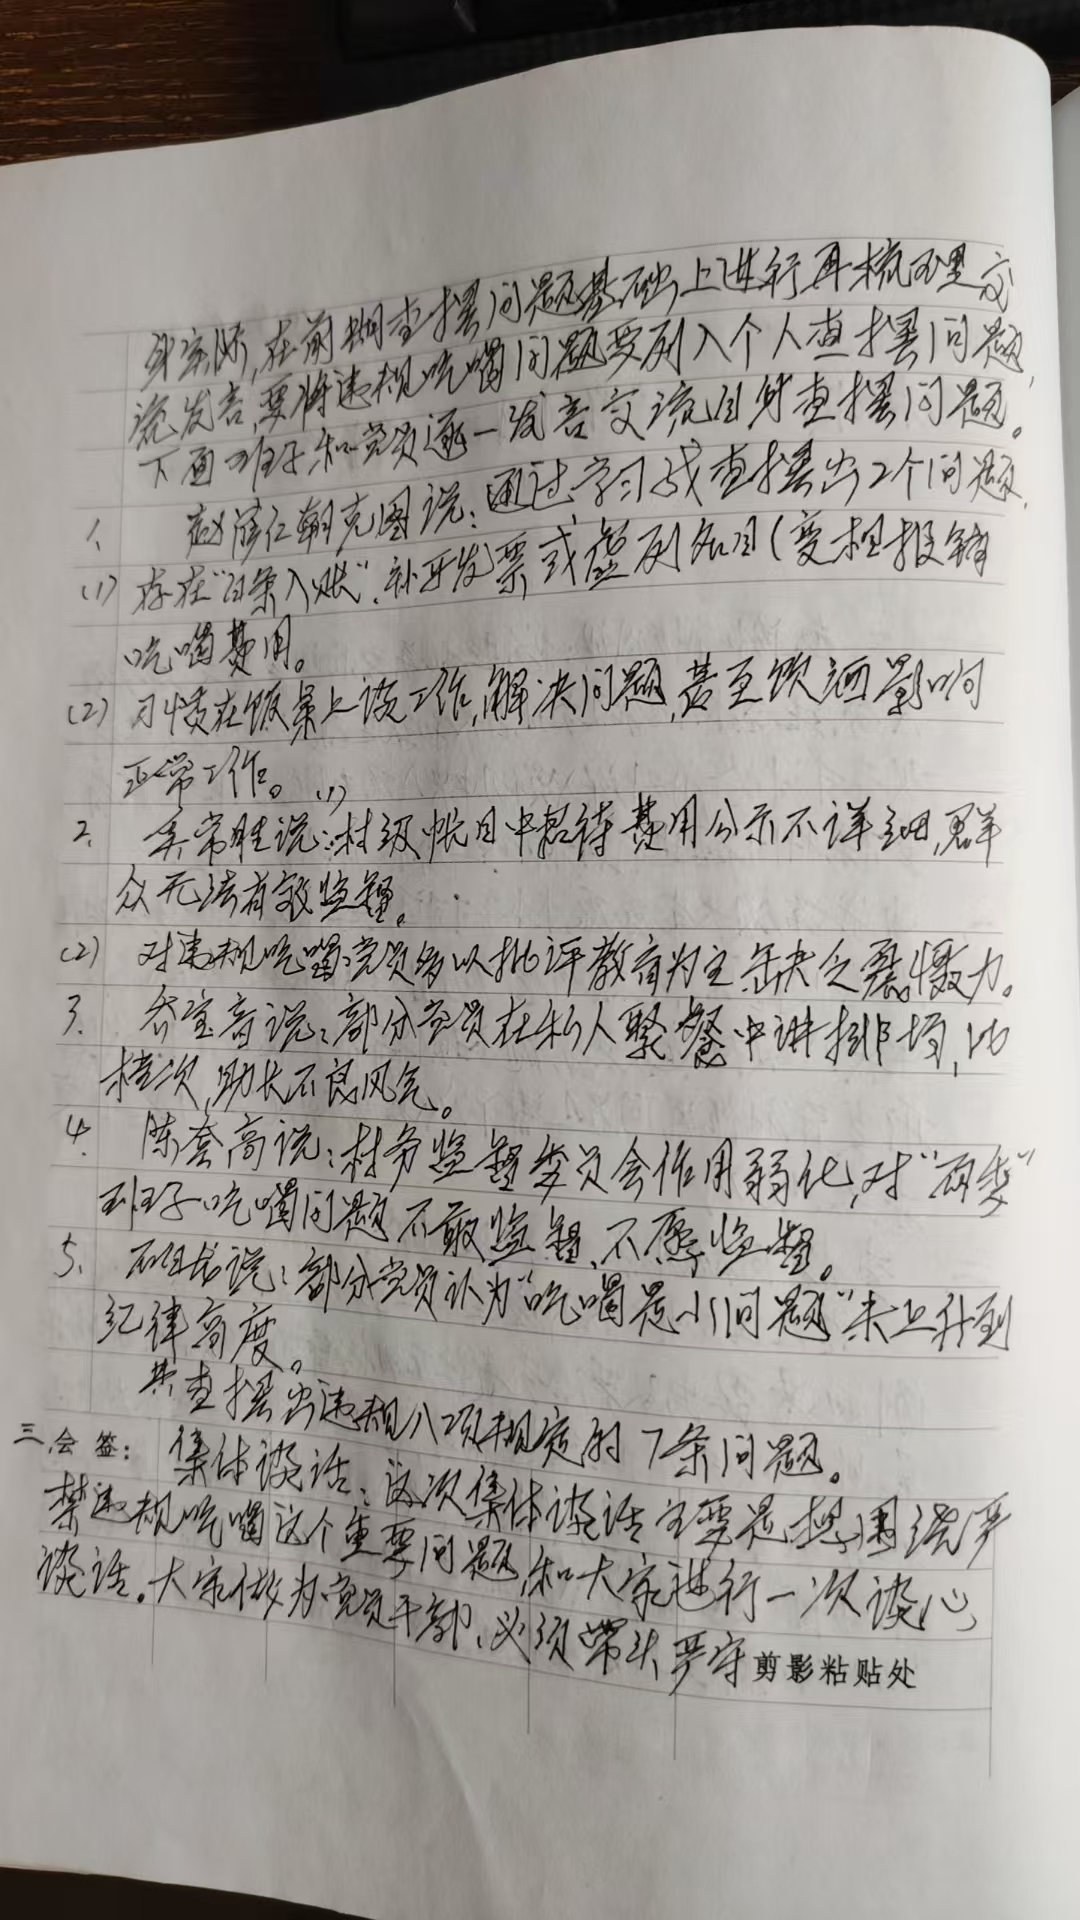 身实际,在前期查摆问题基础上进行再梳理交
流发言,要将违规吃喝问题要列入个人查摆问题,
下面班子和党员逐一发言交流自身查摆问题。
1、 赵 仁朝克图说:通过学习我查摆出2个问题.
(1) 存在"白条入账".补开发票或虚列名目(变相报销
吃喝费用。
(2) 习惯在饭桌上谈工作,解决问题,甚至饮酒影响
正常工作。
2. 常胜说:(1)村级帐目中招待费用公示不详细,群
众无法有效监督。
(2) 对违规吃喝党员多以批评教育为主缺乏震慑力。
3. 乔宝音说:部分党员在私人聚餐中讲排场,比
档次,助长不良风气。
4. 陈套高说:村务监督委员会作用弱化,对"两委"
班子吃喝问题不敢监督、不愿监督。
5. 说:部分党员认为"吃喝是小问题"未上升到
纪律高度。
共查摆出违规八项规定的7条问题。
三、会签: 集体谈话:这次集体谈话主要是想围绕严
禁违规吃喝这个重要问题,和大家进行一次谈心
谈话。大家做为党员干部、必须带头严守 剪影粘贴处